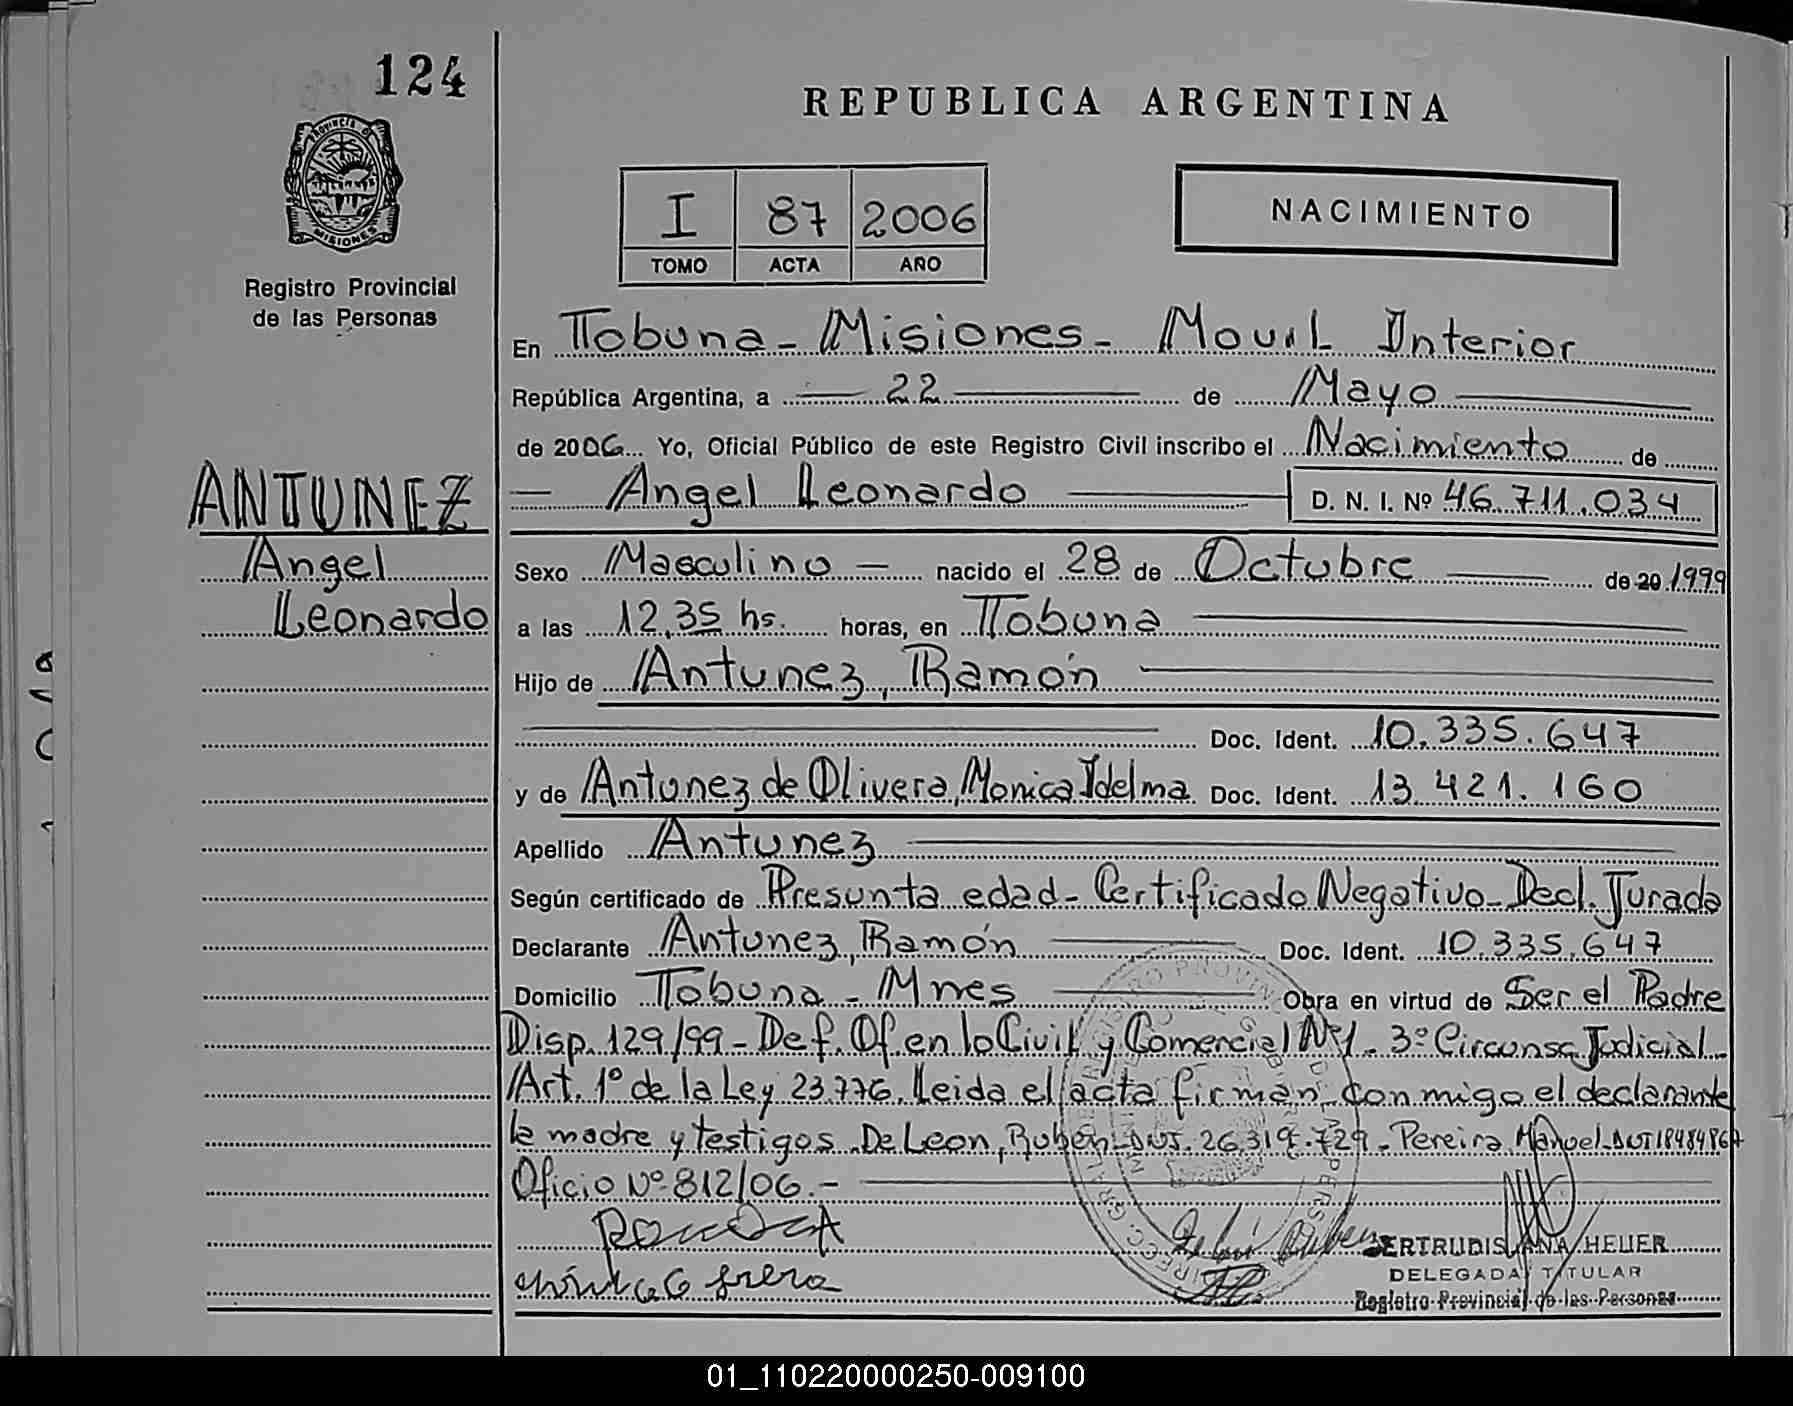 124
REPUBLICA ARGENTINA
PROVINCIA D
MISIONES
I 87 2006
TOMO ACTA AÑO
NACIMIENTO
Registro Provincial
de las Personas
En Tobuna - Misiones - Movil Interior
República Argentina, a 22 de Mayo
de 2006 Yo, Oficial Público de este Registro Civil inscribo el Nacimiento de
ANTUNEZ
Angel
Leonardo
Angel Leonardo D. N. I. Nº 46.711.034
Sexo Masculino nacido el 28 de Octubre de 20 1999
a las 12,35 hs. horas, en Tobuna
Hijo de Antunez, Ramón
Doc. Ident. 10.335.647
y de Antunez de Olivera, Monica Idelma Doc. Ident. 13.421.160
Apellido Antunez
Según certificado de Presunta edad - Certificado Negativo - Decl. Jurada
Declarante Antunez, Ramón Doc. Ident. 10.335.647
Domicilio Tobuna - Mnes Obra en virtud de Ser el Padre
Disp. 129/99 - Def. Of. en lo Civil y Comercial Nº1 - 3º Circunsc. Judicial -
Art. 1º de la Ley 23.776. Leida el acta firman conmigo el declarante
la madre y testigos De Leon, Ruben - DNI. 26.319.729 - Pereira, Manuel - DNI 18484867
Oficio Nº 812/06.-
GERTRUDIS ANA HEUER
DELEGADA TITULAR
Registro Provincial de las Personas
01_110220000250-009100